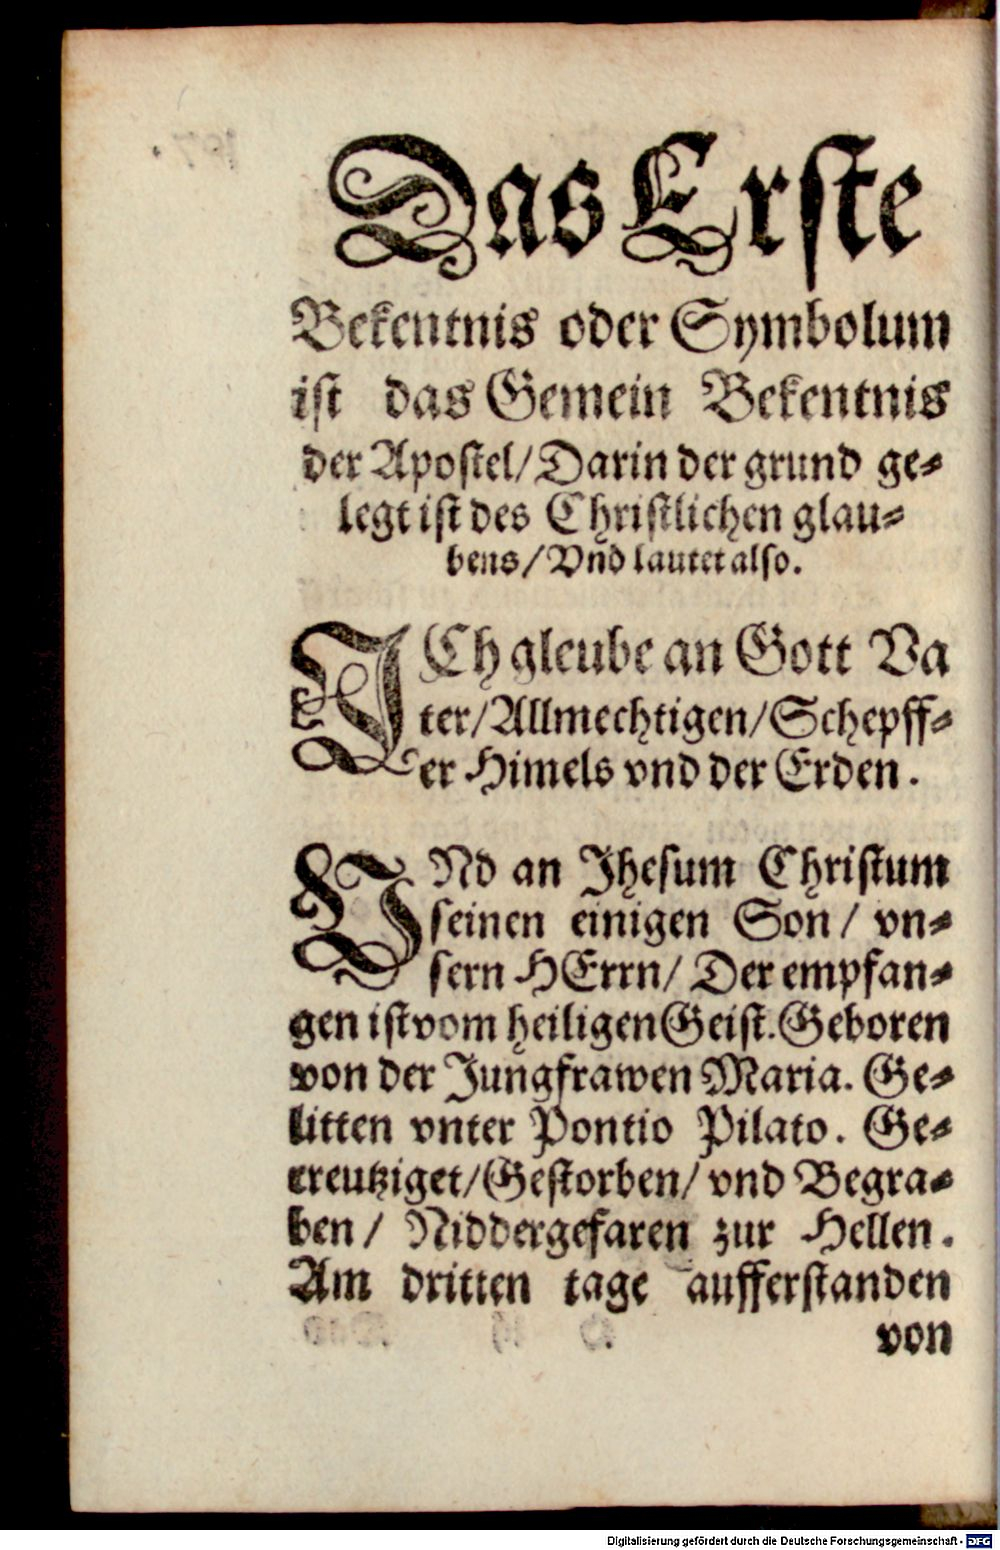 Das Erste
Bekentnis oder Symbolum
ist das Gemein Bekentnis
der Apostel/ Darin der grund ge⸗
legt ist des Christlichen glau⸗
bens/ Vnd lautet also.
ICh gleube an Gott Va
ter/ Allmechtigen/ Schepff⸗
er Himels vnd der Erden.
VNd an Jhesum Christum
seinen einigen Son/ vn⸗
sern HErrn/ Der empfan⸗
gen ist vom heiligen Geist. Geboren
von der Jungfrawen Maria. Ge⸗
litten vnter Pontio Pilato. Ge⸗
creutziget/ Gestorben/ vnd Begra⸗
ben/ Niddergefaren zur Hellen.
Am dritten tage aufferstanden
von
Digitalisierung gefördert durch die Deutsche Forschungsgemeinschaft - DFG